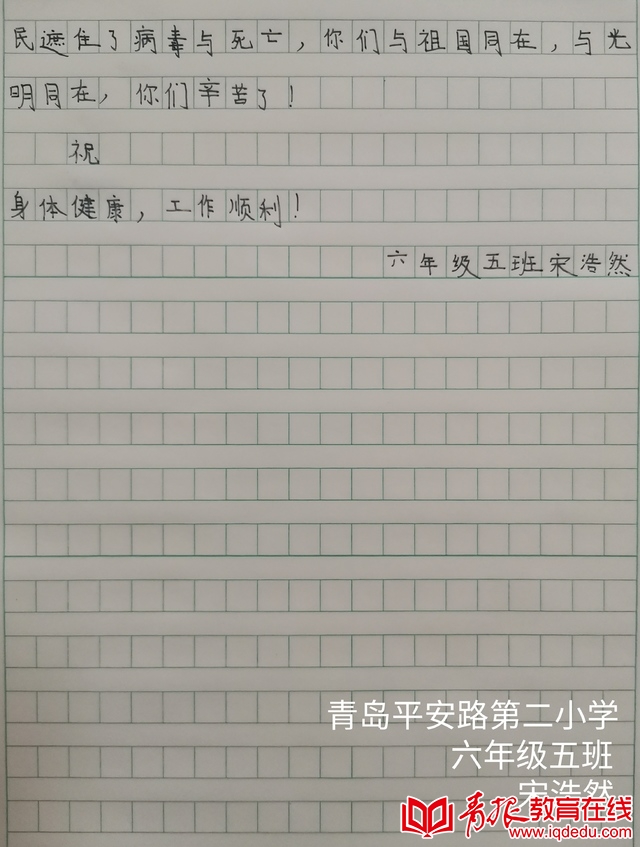 民遮住了病毒与死亡，你们与祖国同在，与光
明同在，你们辛苦了！
祝
身体健康，工作顺利！
六年级五班宋浩然
青岛平安路第二小学
六年级五班
宋浩然
青报教育在线
www.iqdedu.com